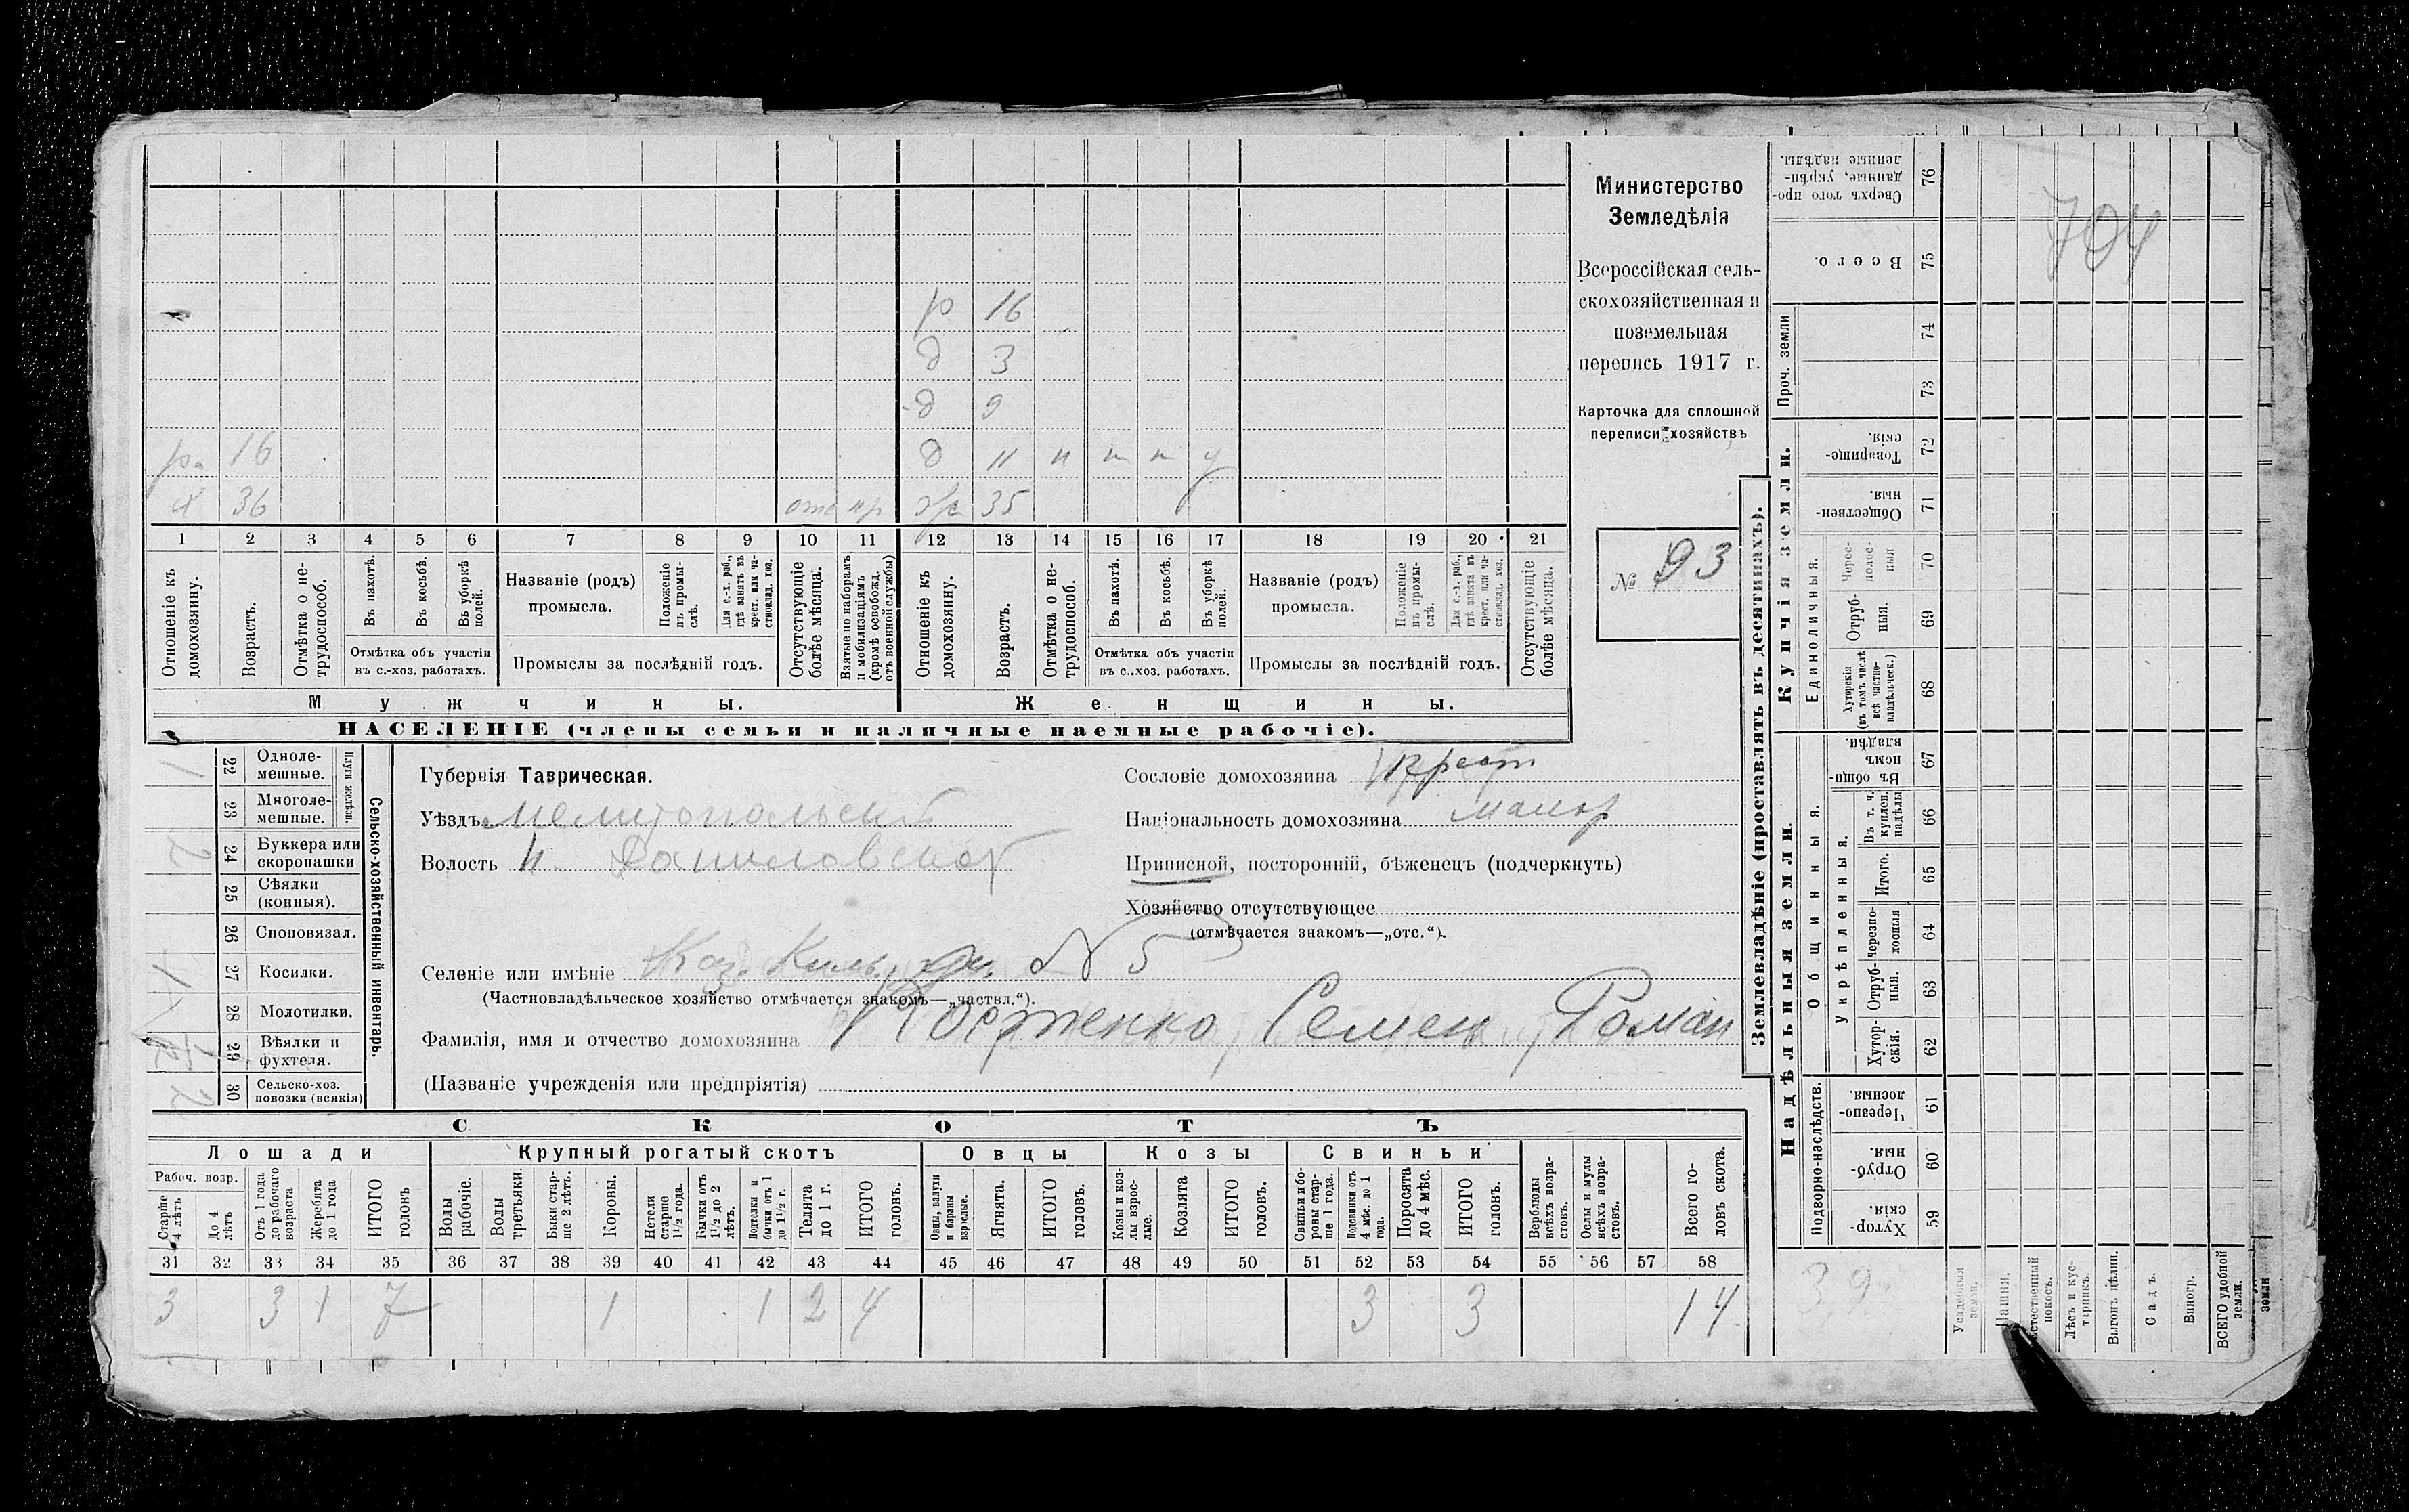 р 16
д 3
д 9
р. 16 д 11 н н н у
х 36 отс пр ж 35
1 2 3 4 5 6 7 8 9 10 11 12 13 14 15 16 17 18 19 20 21
Отношеніе къ домохозяину.
Возрастъ.
Отмѣтка о нетрудоспособ.
Въ пахотѣ.
Въ косьбѣ.
Въ уборкѣ полей.
Отмѣтка объ участіи
въ с.-хоз. работахъ.
Названіе (родъ)
промысла.
Положеніе въ промыслѣ.
Для с.-х. раб., гдѣ занятъ въ крест. или частновлад. хоз.
Промыслы за послѣдній годъ.
Отсутствующіе болѣе мѣсяца.
Взятые по наборамъ и мобилизаціямъ (кромѣ освобожд. отъ военной службы)
Отношеніе къ домохозяину.
Возрастъ.
Отмѣтка о нетрудоспособ.
Въ пахотѣ.
Въ косьбѣ.
Въ уборкѣ полей.
Отмѣтка объ участіи
въ с.-хоз. работахъ.
Названіе (родъ)
промысла.
Положеніе въ промыслѣ.
Для с.-х. раб., гдѣ занята въ крест. или частновлад. хоз.
Промыслы за послѣдній годъ.
Отсутствующіе болѣе мѣсяца.
Мужчины. Женщины.
НАСЕЛЕНІЕ (члены семьи и наличные наемные рабочіе).
Министерство
Земледѣлія
Всероссійская сель-
скохозяйственная и
поземельная
перепись 1917 г.
Карточка для сплошной
переписи хозяйствъ
№ 93
Сельско-хозяйственный инвентарь.
Плуги желѣзн.
1 22 Одноле-
мешные.
23 Многоле-
мешные.
2 24 Буккера или
скоропашки
25 Сѣялки
(конныя).
26 Сноповязал.
1 27 Косилки.
28 Молотилки.
29 Вѣялки и
фухтеля.
2 30 Сельско-хоз.
повозки (всякія)
Губернія Таврическая.
Уѣздъ Мелитопольскій
Волость Н. Даниловской
Сословіе домохозяина Крест
Національность домохозяина малор
Приписной, посторонній, бѣженецъ (подчеркнуть)
Хозяйство отсутствующее
(отмѣчается знакомъ—„отс.“).
Селеніе или имѣніе № 5
(Частновладѣльческое хозяйство отмѣчается знакомъ—„частвл.“).
Фамилія, имя и отчество домохозяина Костенко Семен Роман
(Названіе учрежденія или предпріятія)
СКОТЪ
Лошади Крупный рогатый скотъ Овцы Козы Свиньи
Рабоч. возр.
Старше 4 лѣтъ
До 4 лѣтъ
Отъ 1 года до рабочаго возраста
Жеребята до 1 года
ИТОГО головъ
Волы рабочіе.
Волы третьяки.
Быки старше 2 лѣтъ.
Коровы.
Нетели старше 1½ года.
Бычки отъ 1½ до 2 лѣтъ.
Подтелки и бычки отъ 1 до 1½ г.
Телята до 1 г.
ИТОГО головъ.
Овцы, валухи и бараны взрослые.
Ягнята.
ИТОГО головъ.
Козы и козлы взрослые.
Козлята
ИТОГО головъ.
Свиньи и боровы старше 1 года.
Подсвинки отъ 4 мѣс. до 1 года.
Поросята до 4 мѣс.
ИТОГО головъ.
Верблюды всѣхъ возрастовъ.
Ослы и мулы всѣхъ возрастовъ.
Всего головъ скота.
31 32 33 34 35 36 37 38 39 40 41 42 43 44 45 46 47 48 49 50 51 52 53 54 55 56 57 58
3 3 1 7 1 1 2 4 3 3 14
Землевладѣніе (проставлять въ десятинахъ).
Надѣльныя земли. Купчія земли.
Проч. земли
Подворно-наслѣдств.
Общинныя.
Укрѣпленныя.
Единоличныя.
Сверхъ того проданные, укрѣпленные надѣлы. 76
Всего. 75
74
73
Товарищескія. 72
Общественныя. 71
Черезполосныя 70
Отрубныя. 69
Хуторскія (въ томъ числѣ всѣ частновладѣльческ.) 68
Въ общинномъ владѣн. 67
Въ т. ч. куплен. надѣлы 66
Итого. 65
Черезполосныя 64
Отрубныя. 63
Хуторскія. 62
Черезполосныя. 61
Отрубныя. 60
Хуторскія. 59
704
39
Усадебныя земли.
Пашня.
Естественный покосъ.
Лѣсъ и кустарникъ.
Выгонъ цѣлин.
Садъ.
Виногр.
ВСЕГО удобной земли.
земли